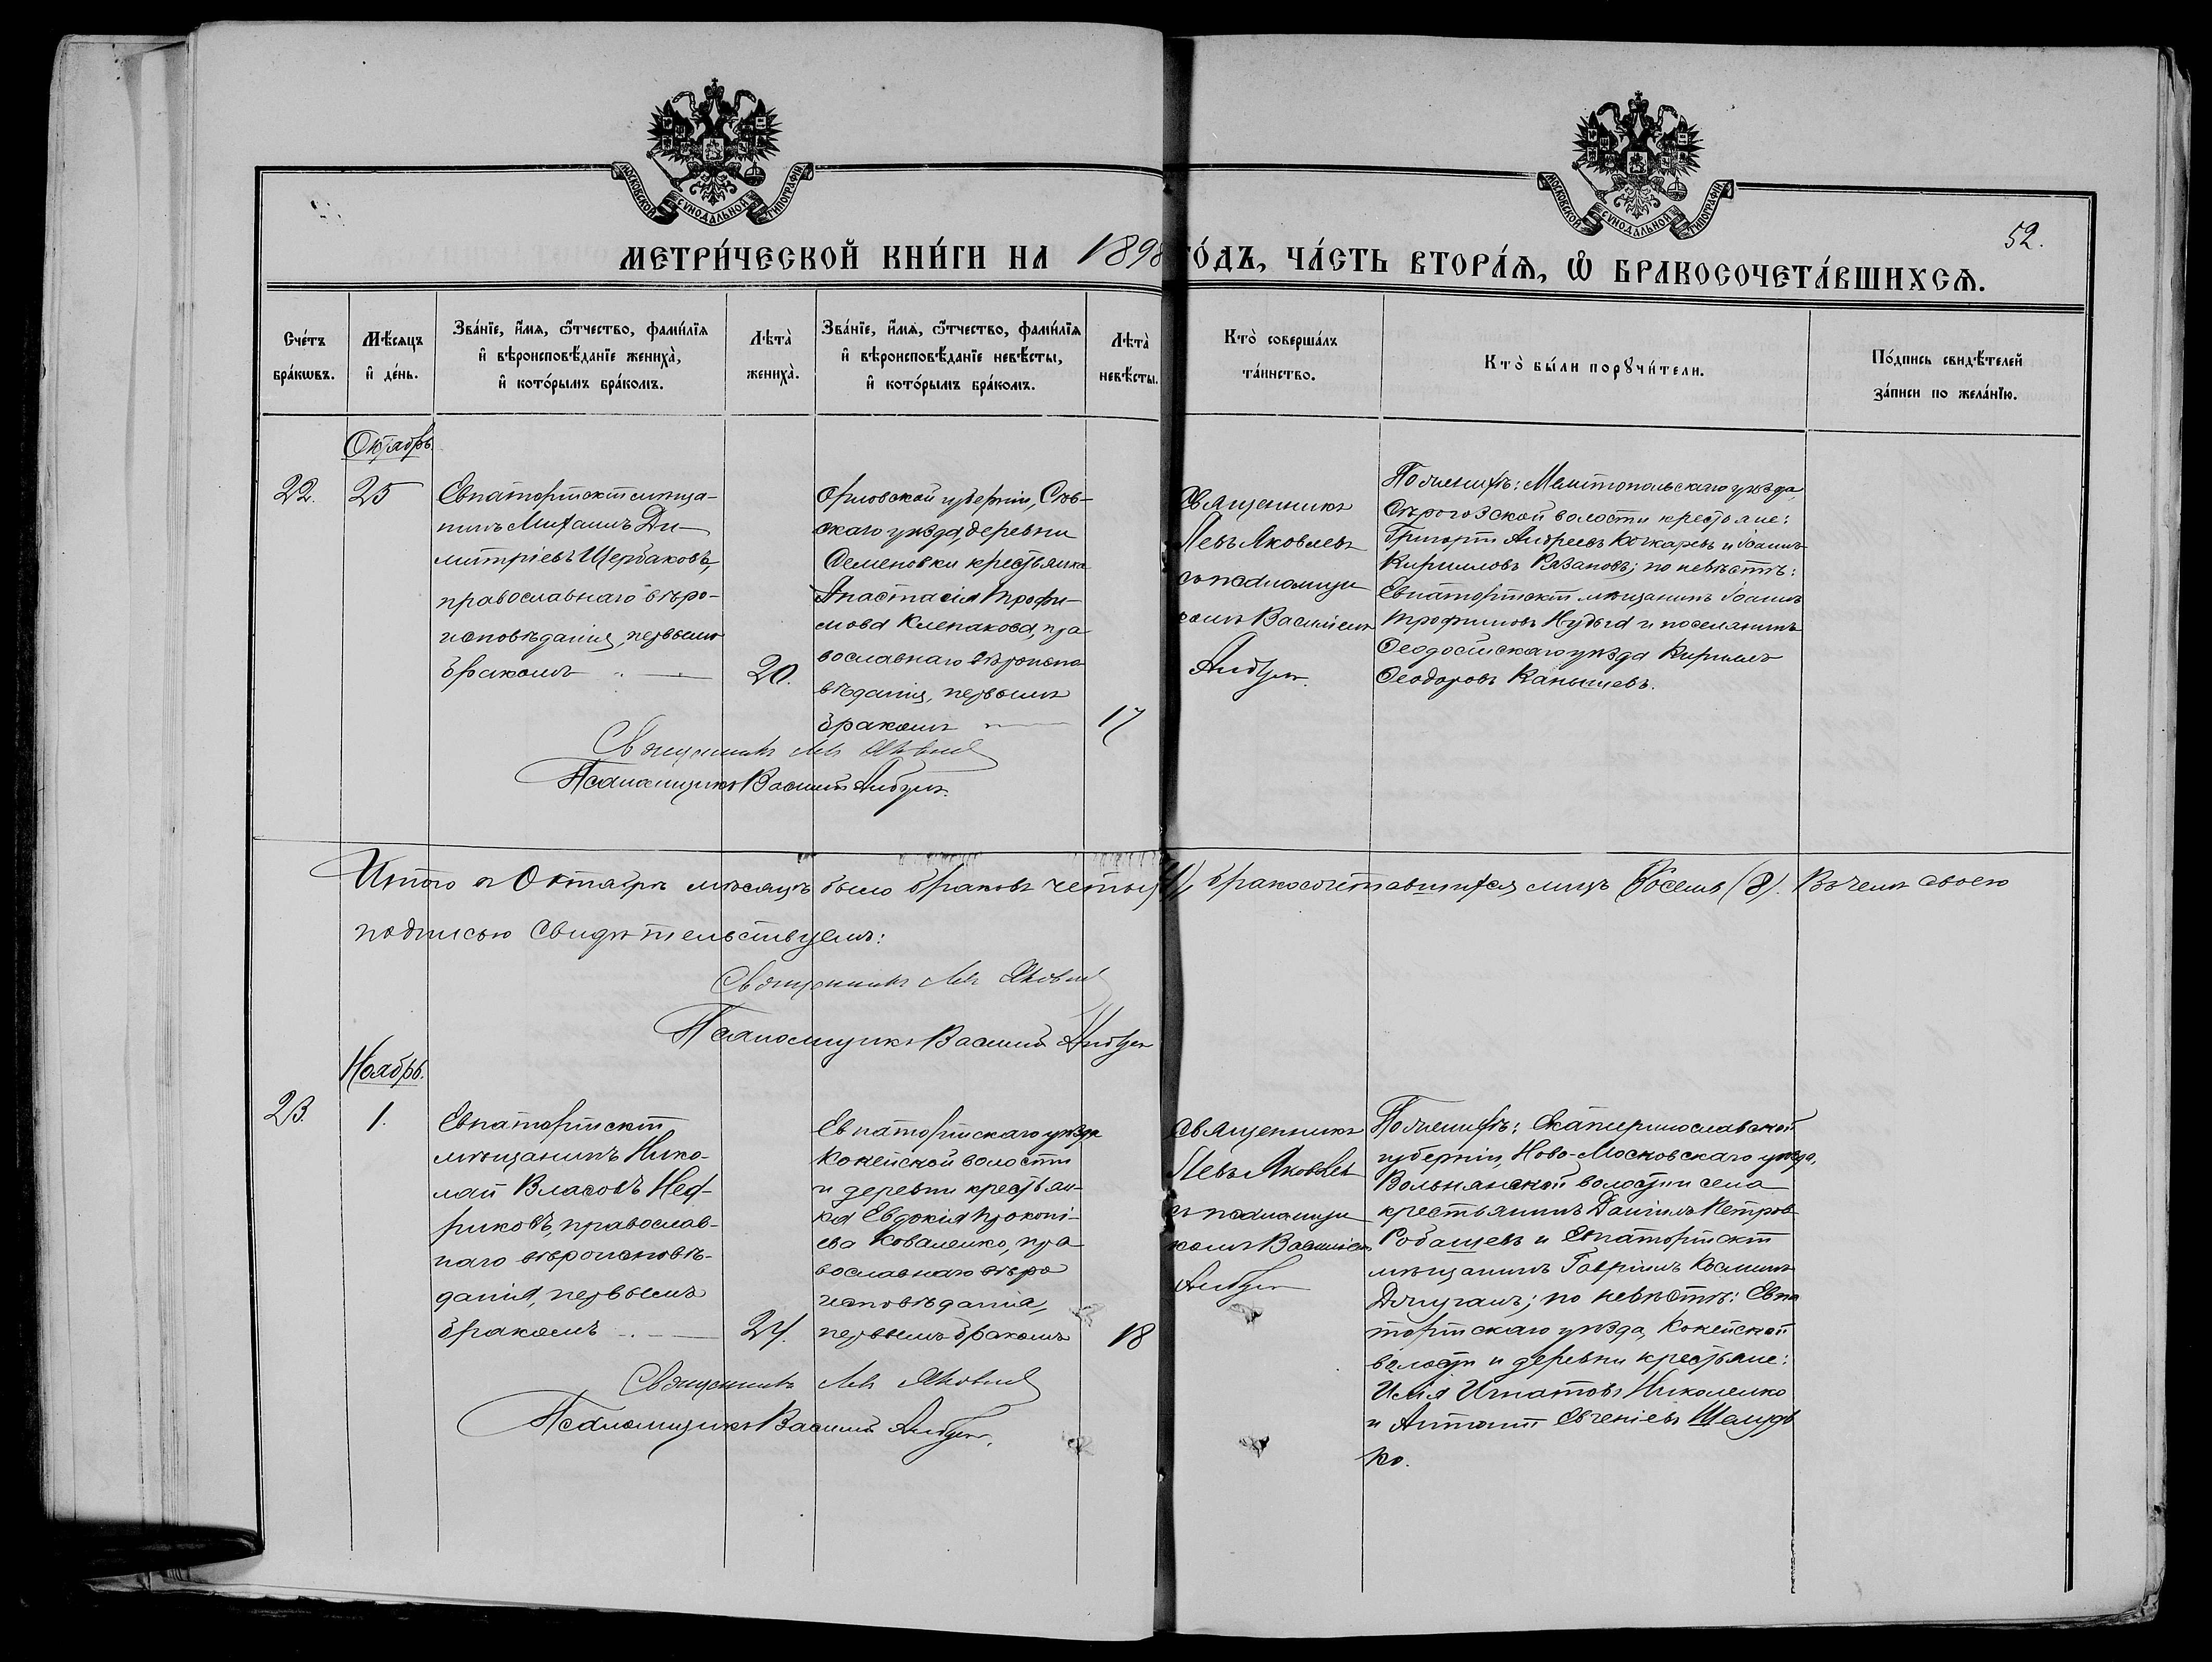 МОСКОВСКОЙ СѴНОДАЛЬНОЙ ТИПОГРАФІИ
МОСКОВСКОЙ СѴНОДАЛЬНОЙ ТИПОГРАФІИ
52.
МЕТРИ́ЧЕСКОЙ КНИ́ГИ НА 1898 ГО́ДЪ, ЧА́СТЬ ВТОРА́Ѧ, Ѽ БРАКОСОЧЕТА́ВШИХСѦ.
Сче́тъ
бра́кѡвъ.
Мѣ́сяцъ
и҆ де́нь.
Зва́нїе, и҆́мѧ, ѻ҆́тчество, фами́лїѧ
и҆ вѣроисповѣ́данїе жениха̀,
и҆ кото́рымъ бра́комъ.
Лѣта̀
жениха̀.
Зва́нїе, и҆́мѧ, ѻ҆́тчество, фами́лїѧ
и҆ вѣроисповѣ́данїе невѣ́сты,
и҆ кото́рымъ бра́комъ.
Лѣта̀
невѣ́сты.
Кто̀ соверша́лъ
та́инство.
Кто̀ бы́ли порꙋчи́тели.
По́дпись свидѣ́телей
за́писи по жела́нїю.
Октябрь.
22.
25
Евпаторійскій мѣща-
нинъ Михаилъ Ди-
митріевъ Щербаковъ,
православнаго вѣро-
исповѣданія, первымъ
бракомъ
20.
Орловской губерніи, Сѣв-
скаго уѣзда, деревни
Семеновки крестьянка
Анастасія Трофи-
мова Клепакова, пра
вославнаго вѣроиспо
вѣданія, первымъ
бракомъ
17
Священникъ
Левъ Яковлевъ
съ псаломщи
комъ Василіемъ
По женихѣ: Мелитопольскаго уѣзда
Сѣрогозской волости крестьяне:
Григорій Андреевъ Кочкаревъ и Іоаннъ
Кирилловъ Рязановъ; по невѣстѣ:
Евпаторійскій мѣщанинъ Іоаннъ
Трофимовъ Нудьга и поселянинъ
Ѳеодосійскаго уѣзда Кириллъ
Ѳеодоровъ Канышевъ.
Священникъ Левъ Яковлевъ
Псаломщикъ Василій
Итого въ Октябрѣ мѣсяцѣ было браковъ четыре (4), бракосочетавшихся лицъ восемь (8). Въ чемъ своею
подписью свидѣтельствуемъ:
Священникъ Левъ Яковлевъ
Псаломщикъ Василій
Ноябрь.
23.
1.
Евпаторійскій
мѣщанинъ Нико-
лай Власовъ Неф-
риковъ, православ-
наго вѣроисповѣ-
данія, первымъ
бракомъ
24.
Евпаторійскаго уѣзда
Кокейской волости
и деревни крестьян-
ка Евдокія Прокопі-
ева Коваленко, пра
вославнаго вѣро
исповѣданія,
первымъ бракомъ
18
Священникъ
Левъ Яковлевъ
съ псаломщи
комъ Василіемъ
По женихѣ: Екатеринославской
губерніи, Ново-Московскаго уѣзда,
Вольнянской волости и села
крестьянинъ Даніилъ Петровъ
и Евпаторійскій
мѣщанинъ Гавріилъ
по невѣстѣ: Евпа
торійскаго уѣзда, Кокейской
волости и деревни крестьяне:
Илія Игнатовъ Николенко
и Антоній Евгеніевъ Шелудь
ко.
Священникъ Левъ Яковлевъ
Псаломщикъ Василій